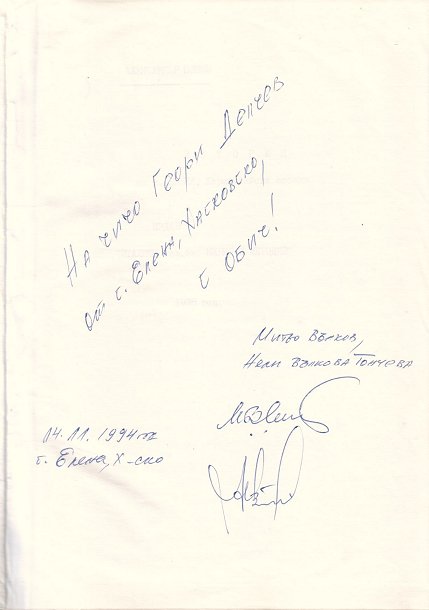 На чичо Георги Делчев
от с. Елена, Хасковско,
с обич!
Митьо Вълков,
Нели Вълкова Тончева
04.11.1994 год
с. Елена, Х-ско